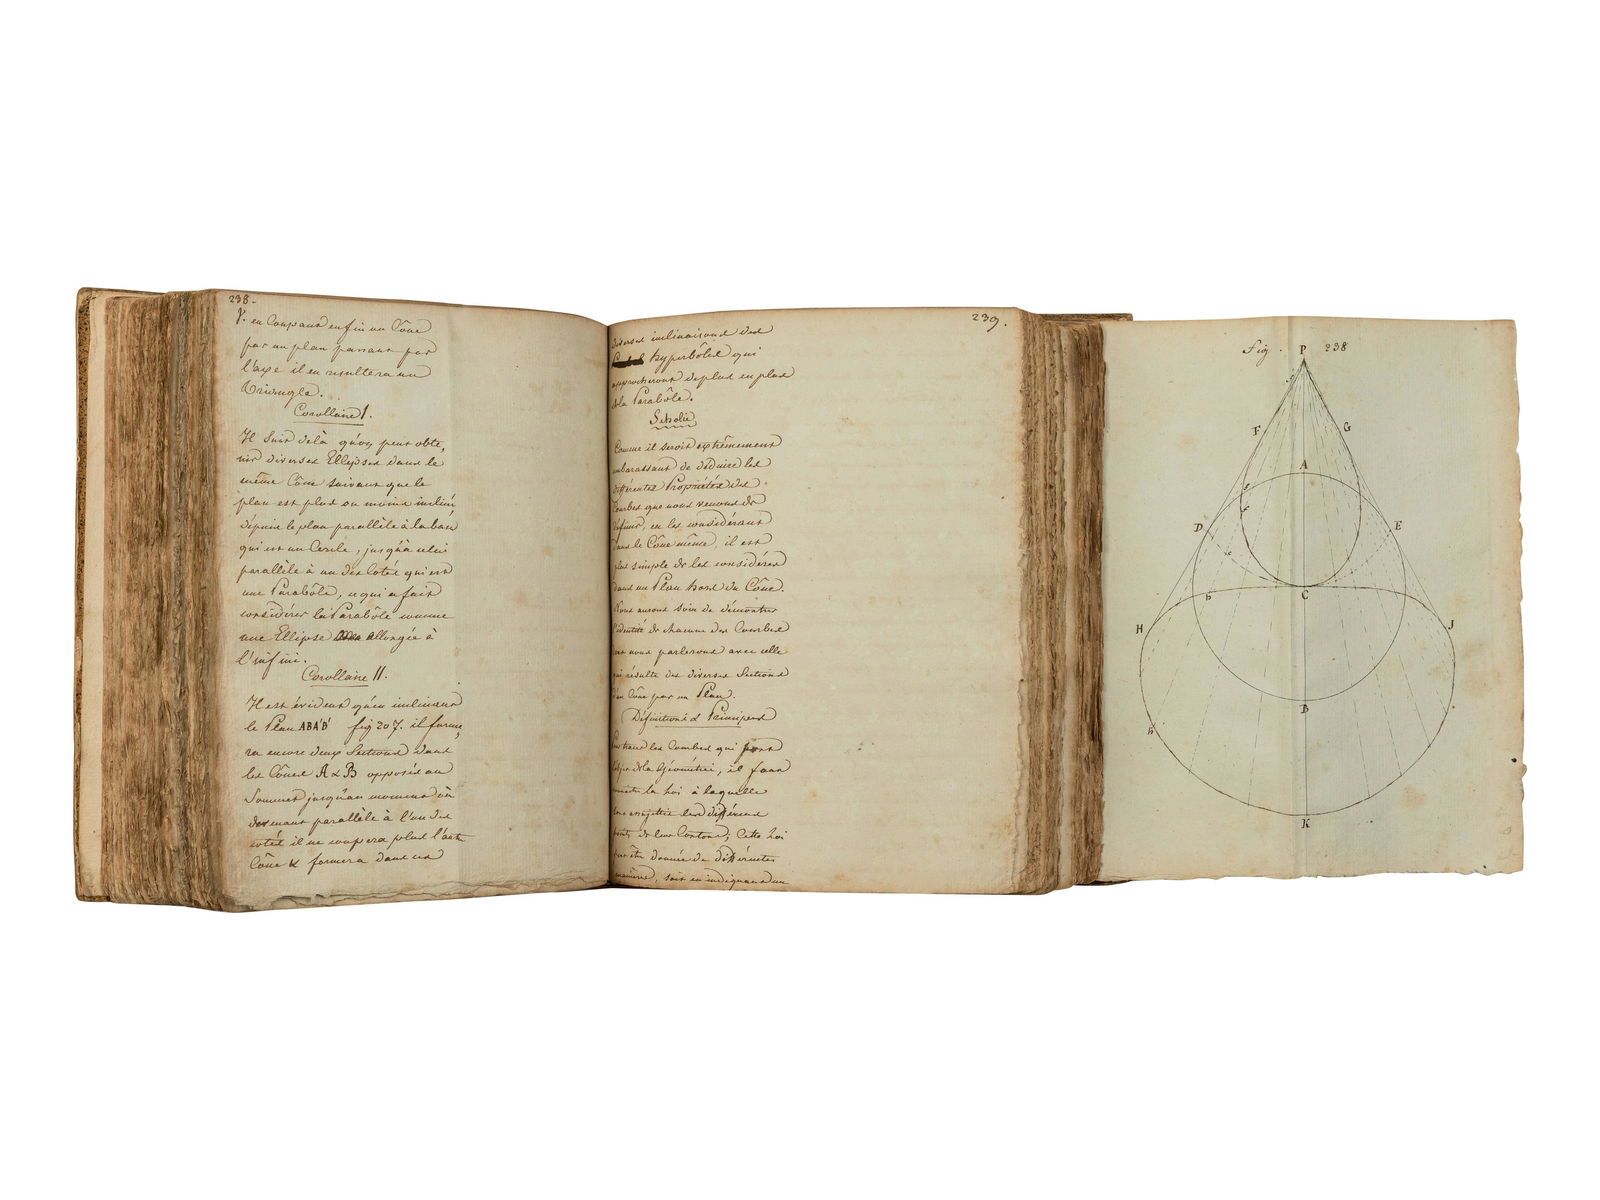 238.
V. en Coupant enfin un Cône
par un plan passant par
l'axe il en resultera un
Triangle.
Corollaire I.
Il suit delà qu'on peut obte,
nir diverses Ellipses dans le
même Cône suivant que le
plan est plus ou moins incliné
depuis le plan parallèle à la base
qui est un Cercle, jusqu'à celui
parallèle à un des Cotés qui est
une Parabôle, ce qui a fait
considérer la Parabôle comme
une Ellipse allongée à
l'infini.
Corollaire II.
Il est évident qu'en inclinant
le Plan ABA'B' fig 207. il forme,
ra encore deux Sections dans
les Cônes A & B opposés au
Sommet jusqu'au moment où
devenant parallèle à l'un des
cotés il ne coupera plus l'autre
Cône & formera dans ces
239.
diverses inclinaisons des
hyperbôles qui
approcheront de plus en plus
de la Parabôle.
Scholie
Comme il seroit extrêmement
embarassant de déduire les
différentes Propriétés des
Courbes que nous venons de
définir, en les considérant
dans le Cône même, il est
plus simple de les considérer
dans un Plan hors du Cône.
Nous aurons soin de démontrer
l'identité de chacune des Courbes
dont nous parlerons avec celle
qui résulte des diverses Sections
d'un Cône par un Plan.
Définitions & Principes
Pour tracer les Courbes qui font
l'objet de la Géométrie, il faut
connoitre la loi à laquelle
sont assujettis les différens
points de leur Contour; Cette Loi
peut être donnée de différentes
manières, soit en indiquant un
Fig. 238
P
F G
A
D E
b C
H J
B
h
K